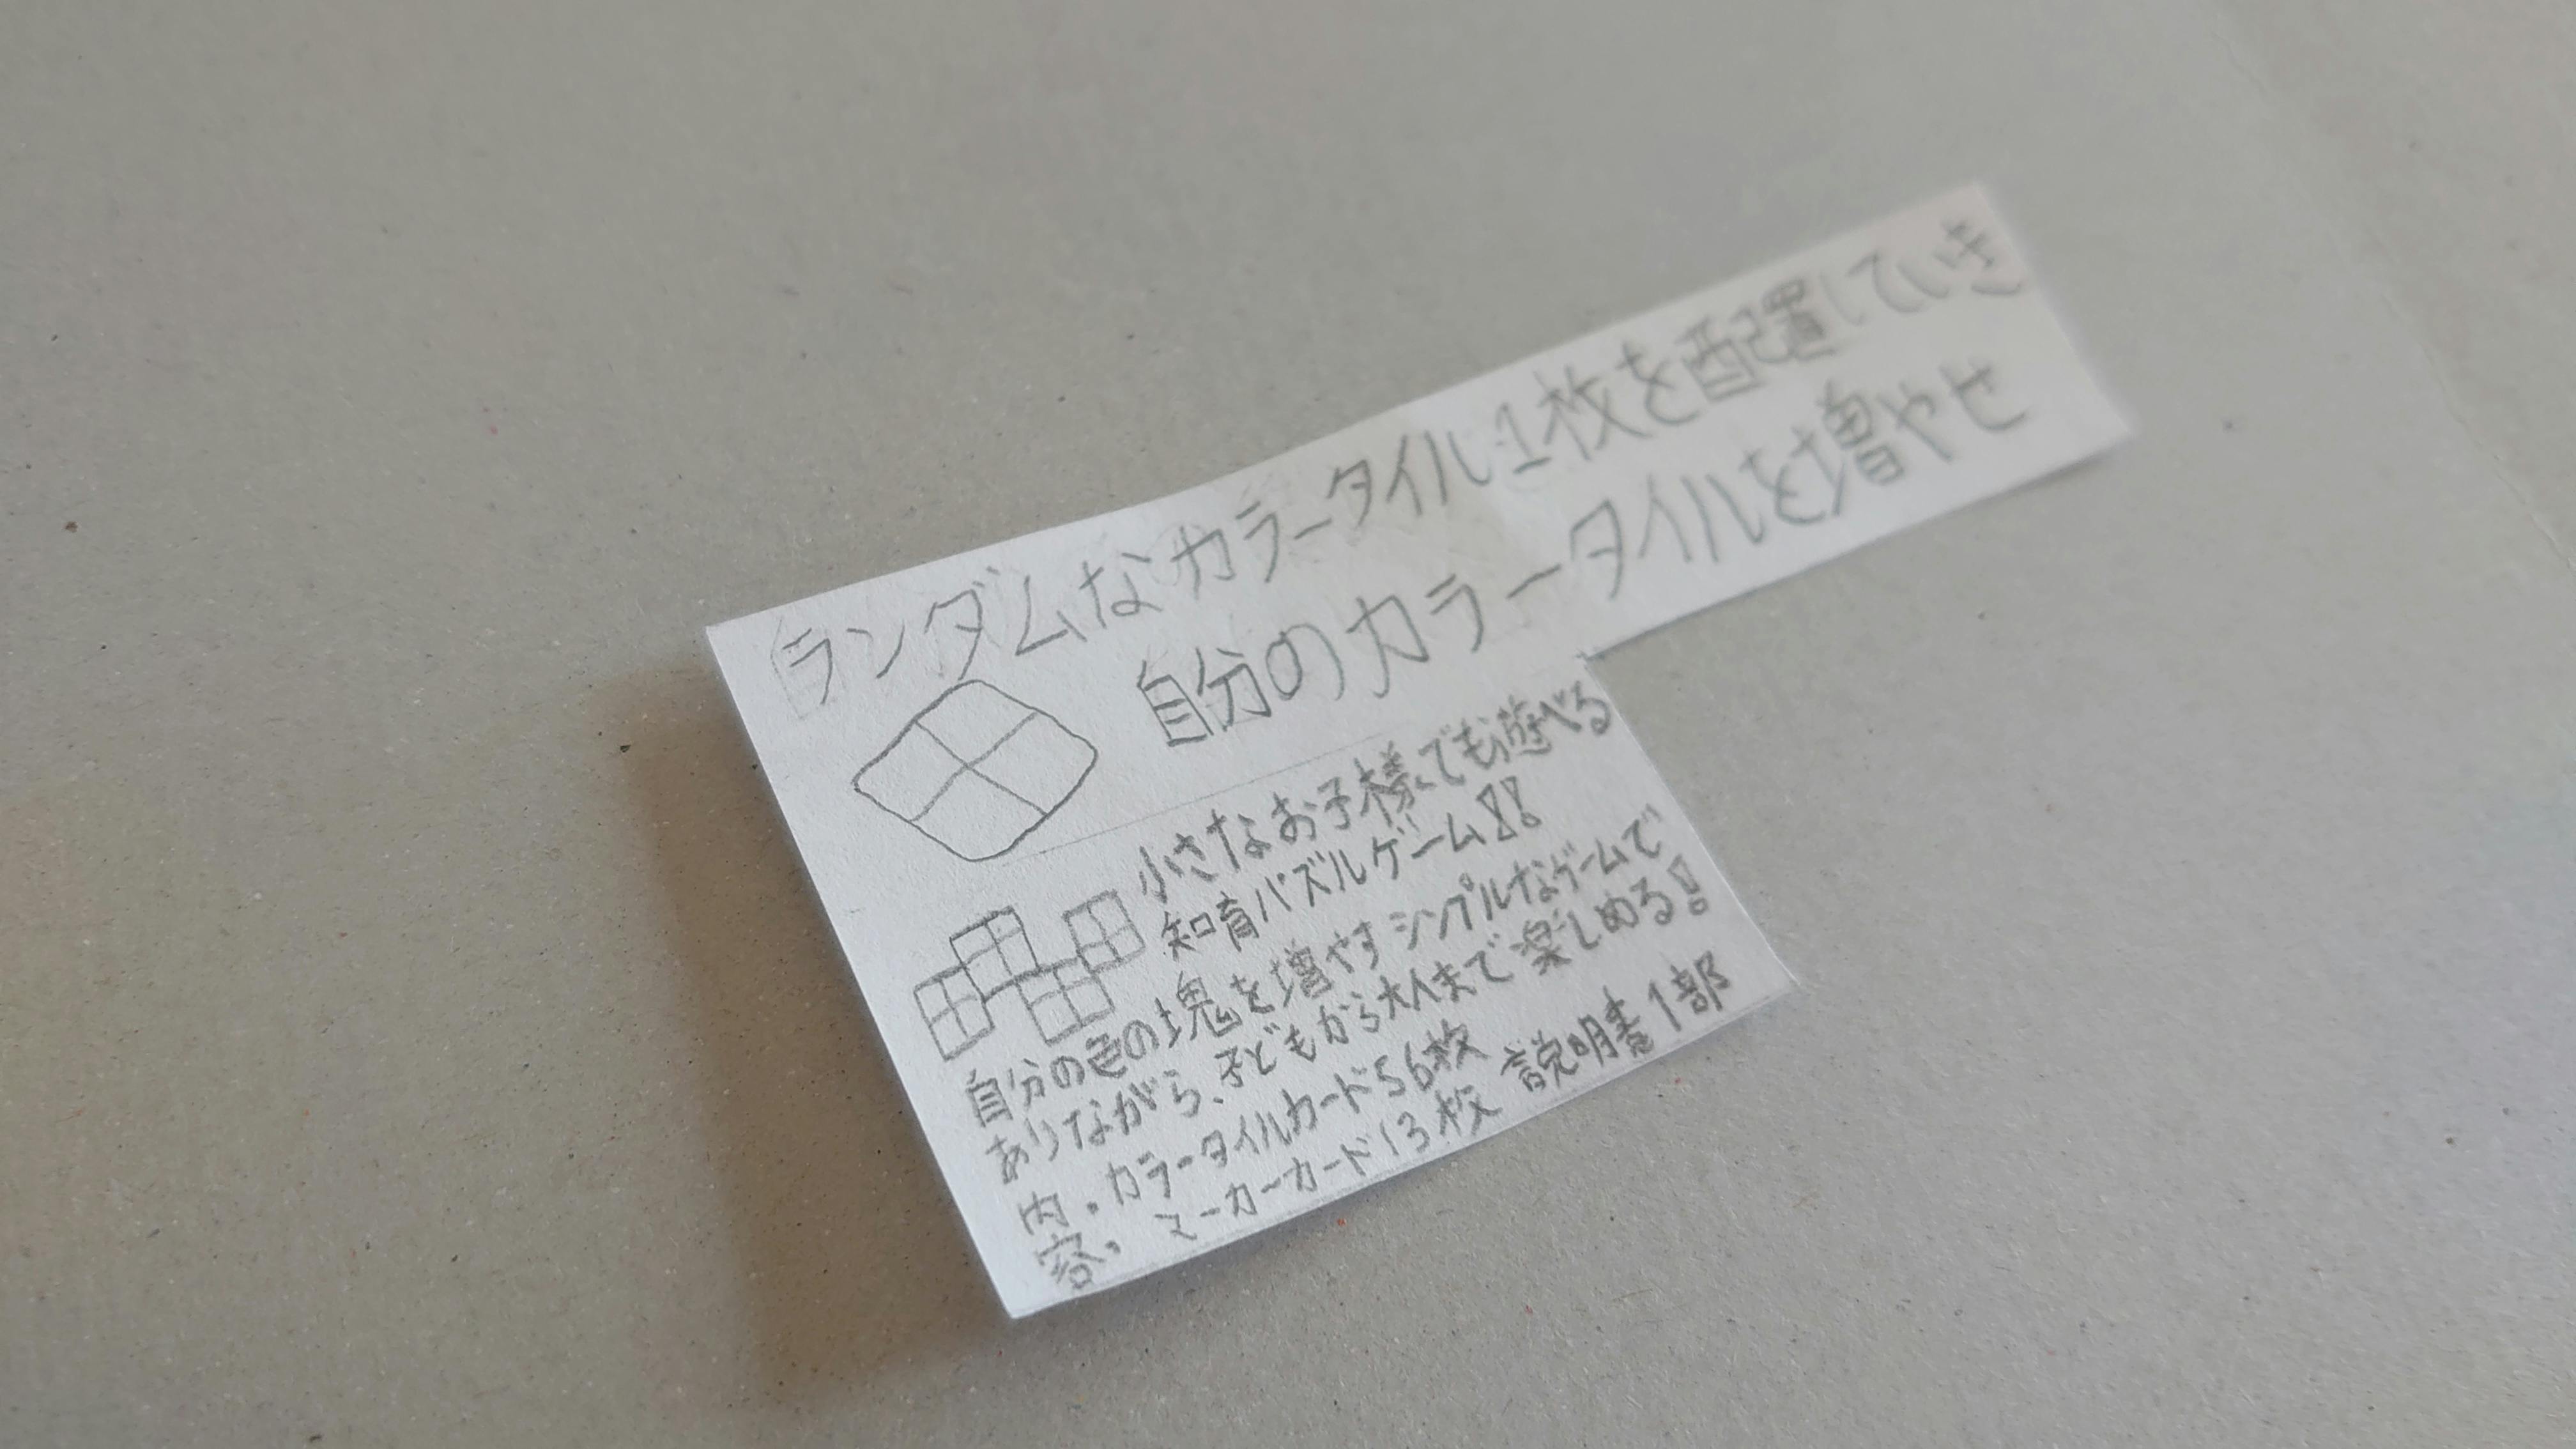 ランダムなカラータイル1枚を配置していき
自分のカラータイルを増やせ
小さなお子様でも遊べる
知育パズルゲーム!!
自分の色の塊を増やすシンプルなゲームで
ありながら、子どもから大人まで楽しめる!
内容. カラータイルカード56枚
マーカーカード13枚 説明書1部